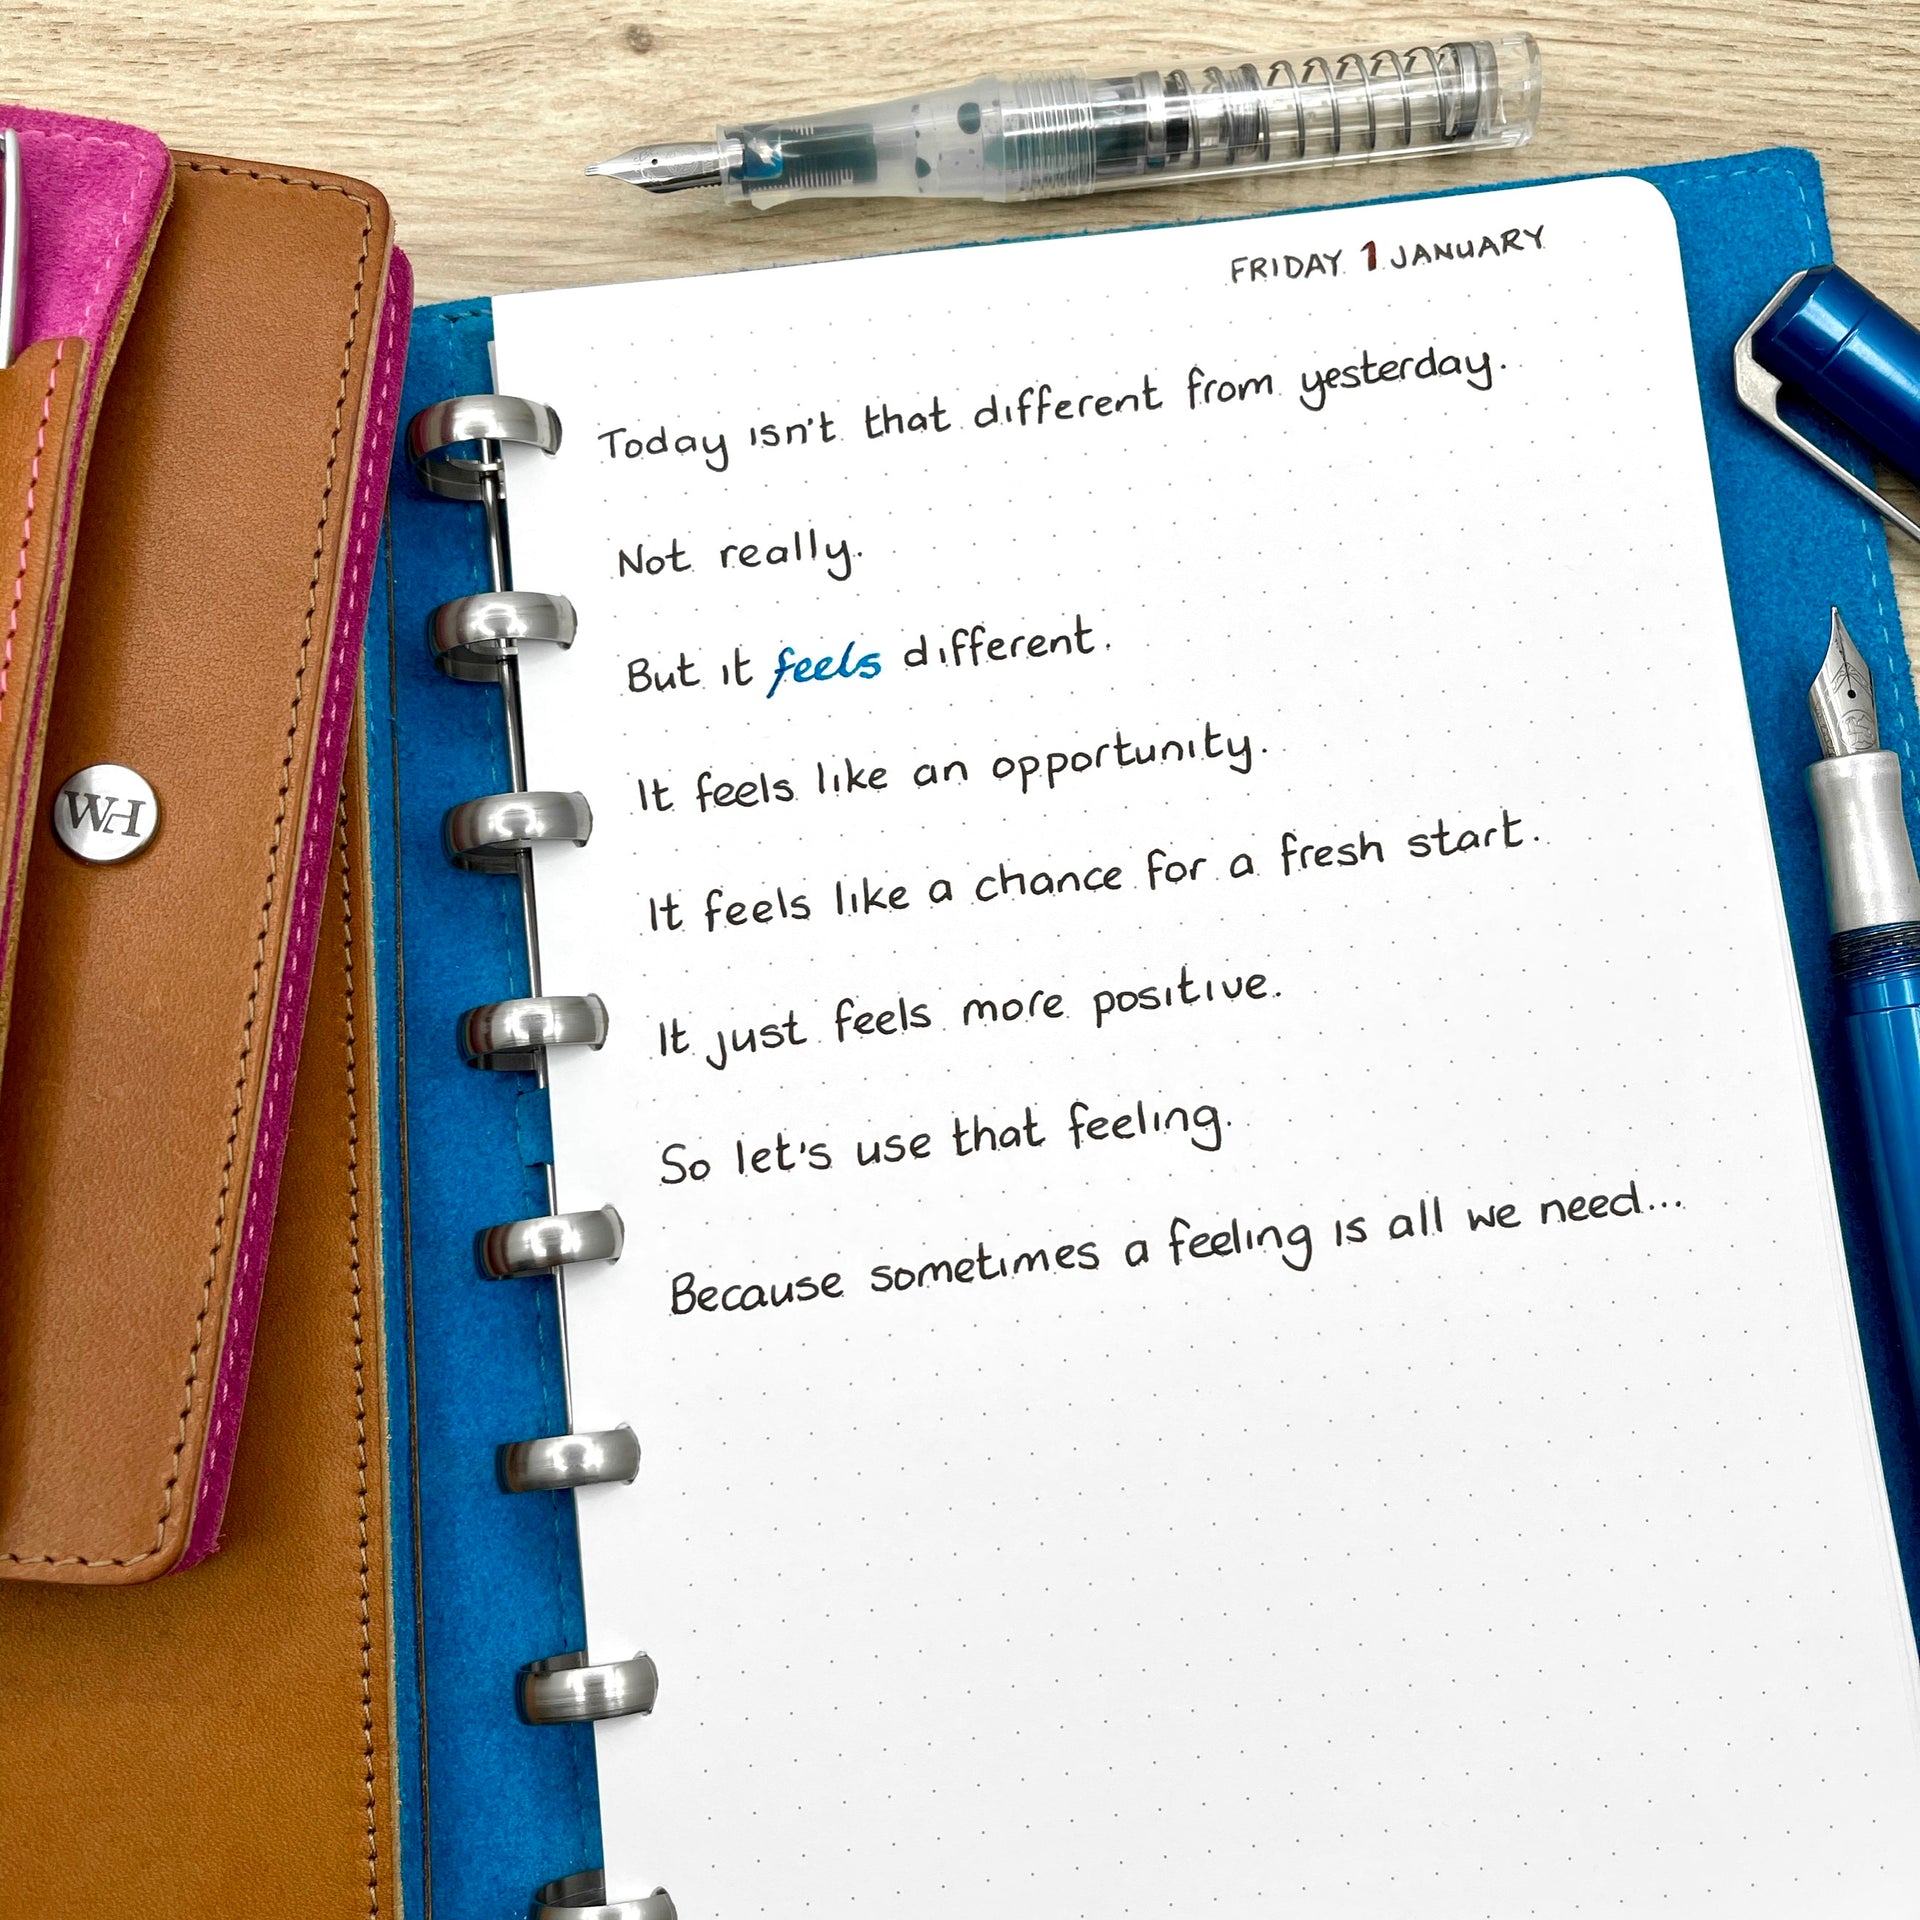 FRIDAY 1 JANUARY
Today isn't that different from yesterday.
Not really.
But it feels different.
It feels like an opportunity.
It feels like a chance for a fresh start.
It just feels more positive.
So let's use that feeling.
Because sometimes a feeling is all we need...
WH